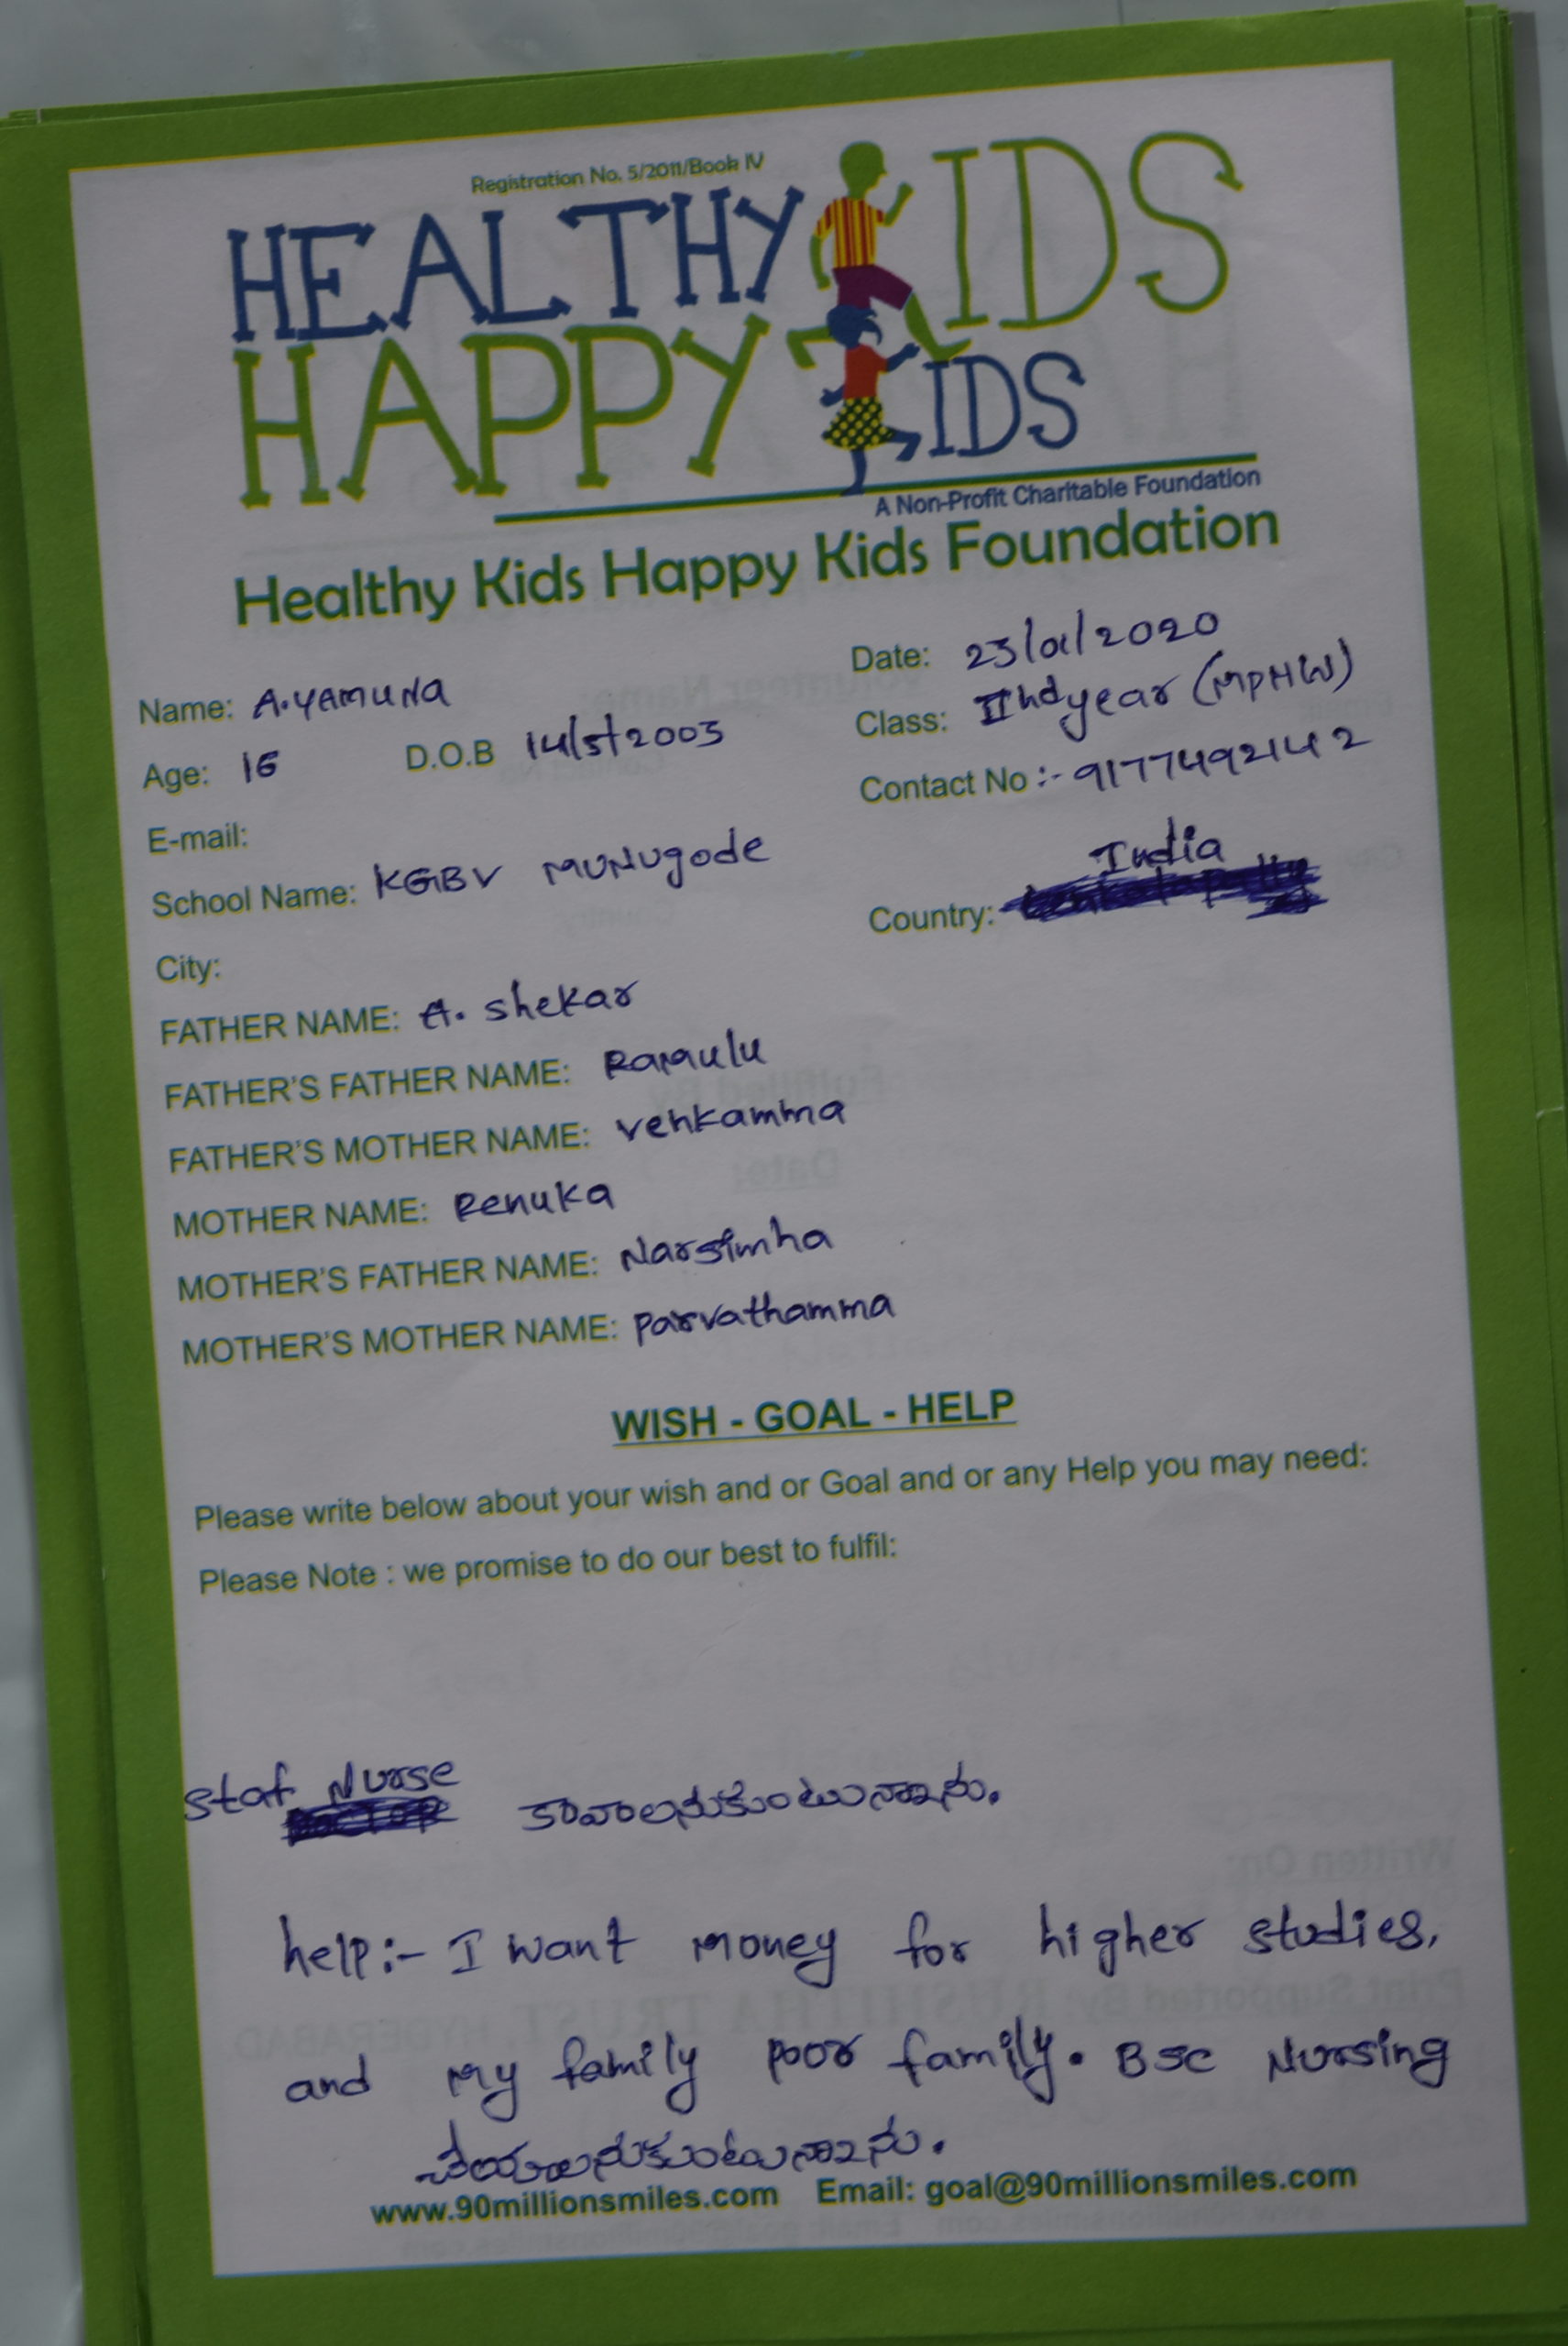 Registration No. 5/2011/Book IV
HEALTHY KIDS
HAPPY KIDS
A Non-Profit Charitable Foundation
Healthy Kids Happy Kids Foundation
Date: 23/01/2020
Name: A.YAMUNA
Class: IInd year (MPHW)
Age: 16 D.O.B 14/5/2003
Contact No :- 9177492142
E-mail:
School Name: KGBV MUNUgode
India
Country:
City:
FATHER NAME: A. Shekar
FATHER'S FATHER NAME: Ramulu
FATHER'S MOTHER NAME: Venkamma
MOTHER NAME: Renuka
MOTHER'S FATHER NAME: Narsimha
MOTHER'S MOTHER NAME: Parvathamma
WISH - GOAL - HELP
Please write below about your wish and or Goal and or any Help you may need:
Please Note : we promise to do our best to fulfil:
Staf Nurse కావాలనుకుంటున్నాను.
help:- I want money for higher studies,
and my family poor family. BSC Nursing
చేయాలనుకుంటున్నాను.
www.90millionsmiles.com Email: goal@90millionsmiles.com